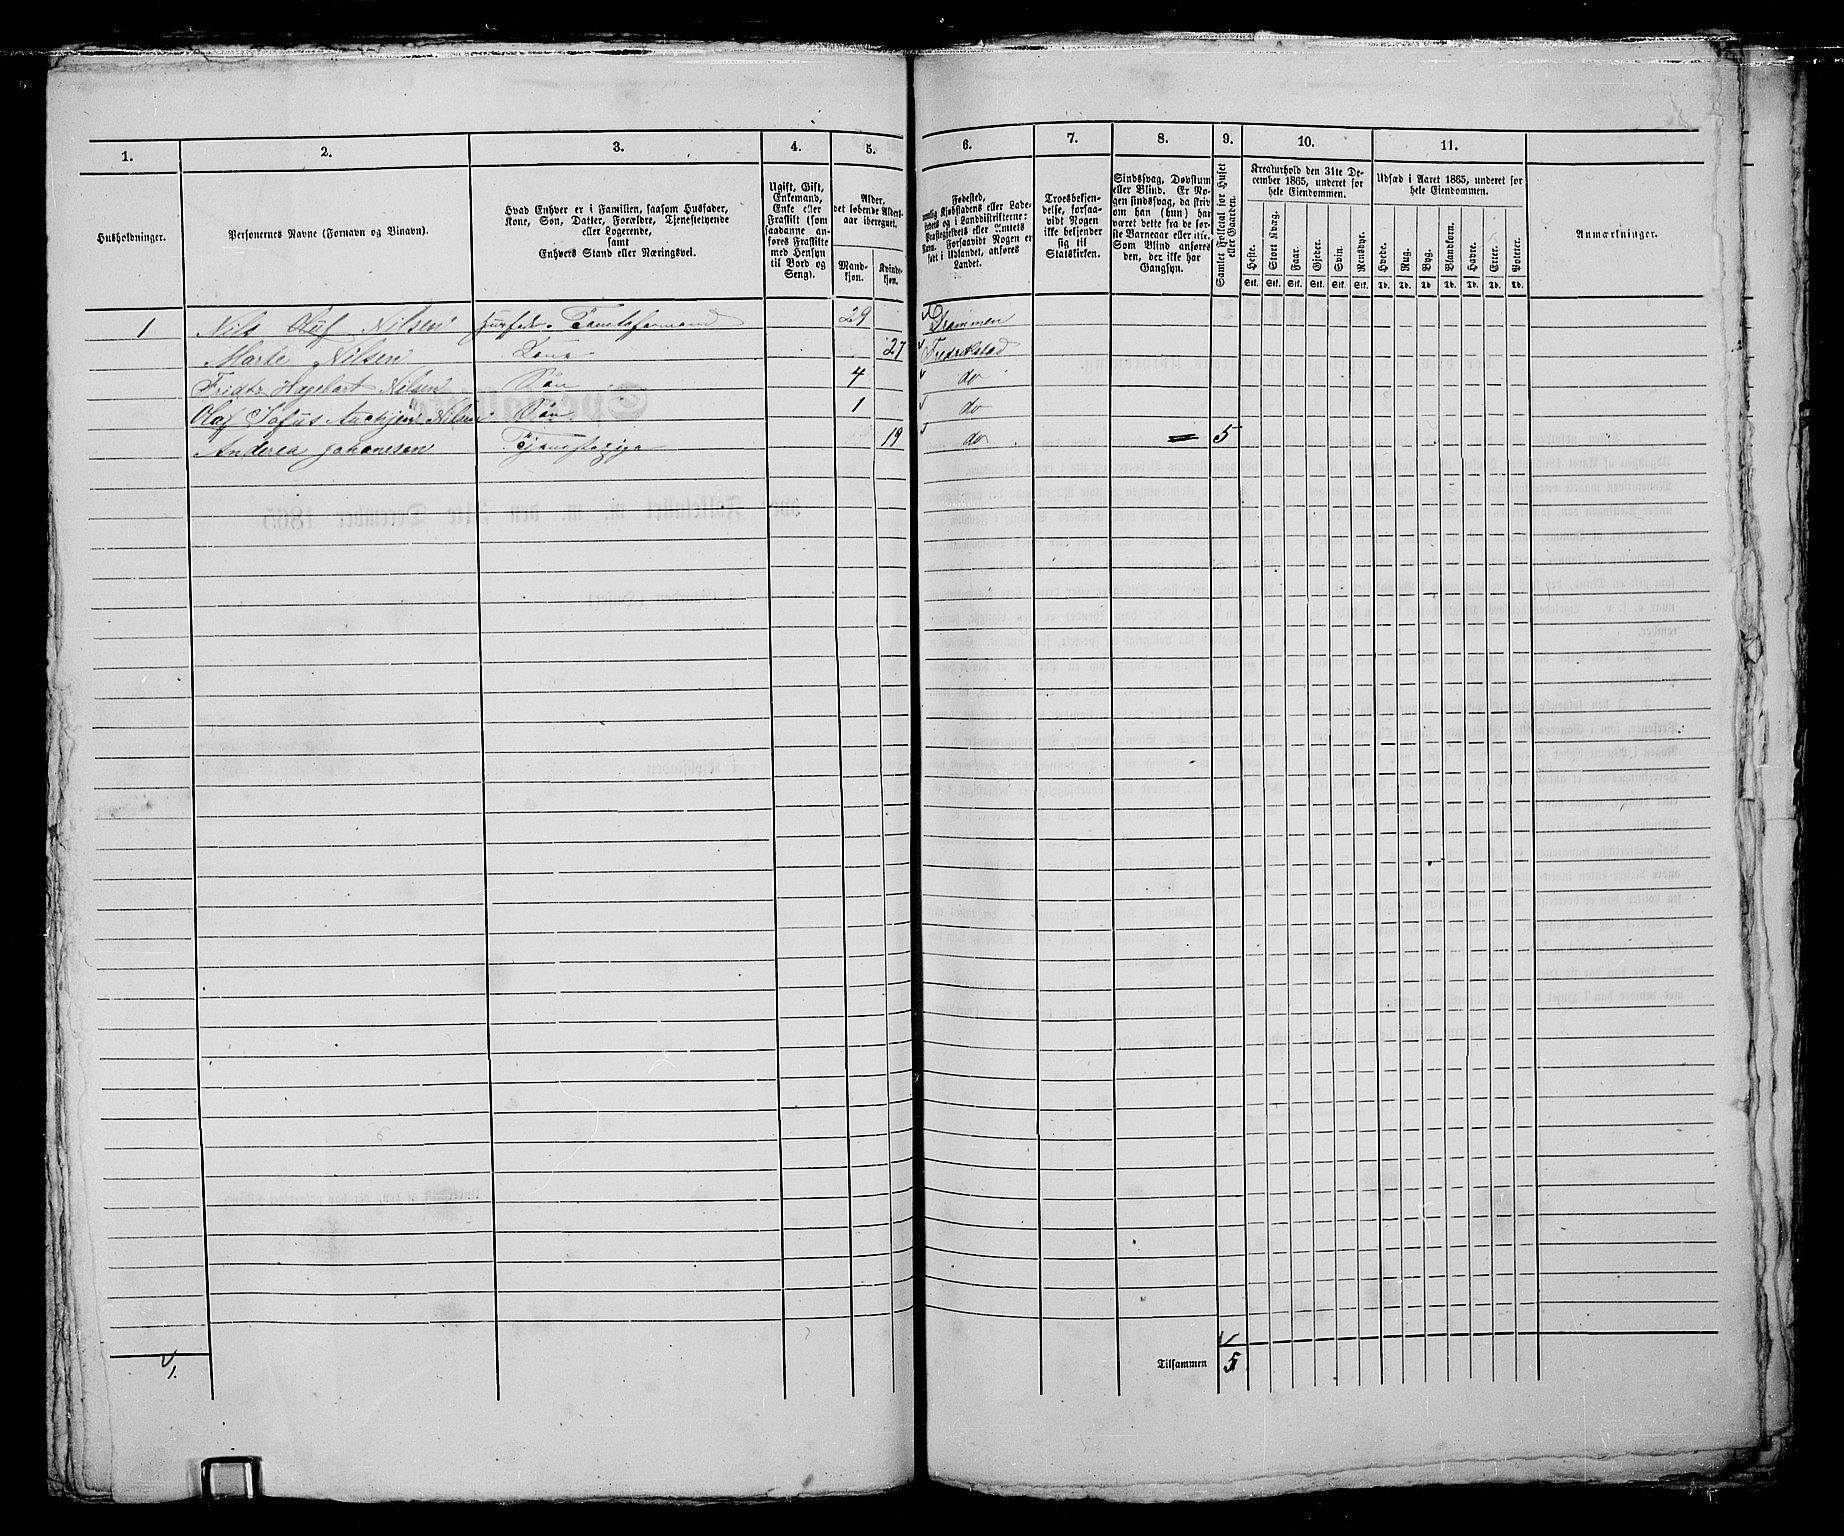 1. 2. 3. 4. 5. 6. 7. 8. 9. 10. 11.
Husholdninger.
Personernes Navne (Fornavn og Binavn).
Hvad Enhver er i Familien, saasom Husfader,
Kone, Søn, Datter, Forældre, Tjenestetyende
eller Logerende,
samt
Enhvers Stand eller Næringsvei.
Ugift, Gift,
Enkemand,
Enke eller
Fraskilt (som
saadanne an-
føres Fraskilte
med Hensyn
til Bord og
Seng).
Alder,
det løbende Alders-
aar iberegnet.
Mand-
kjøn.
Kvinde-
kjøn.
Fødested,
nemlig Kjøbstadens eller Lade-
stedets og i Landdistrikterne:
Præstegjeldets eller Amtets
Navn. Forsaavidt Nogen er
født i Udlandet, anføres
Landet.
Troesbekjen-
delse, forsaa-
vidt Nogen
ikke bekjender
sig til
Statskirken.
Sindssvag, Døvstum
eller Blind. Er No-
gen sindssvag, da skriv
om han (hun) har
været dette fra de før-
ste Barneaar eller ikke.
Som Blind anføres
den, der ikke har
Gangsyn.
Samlet Folketal for Huset
eller Gaarden.
Kreaturhold den 31te De-
cember 1865, underet for
hele Eiendommen.
Heste. Stort Kvæg. Faar. Gjeder. Svin. Rensdyr.
Stk. Stk. Stk. Stk. Stk. Stk.
Udsæd i Aaret 1865, underet for
hele Eiendommen.
Hvede. Rug. Byg. Blandkorn. Havre. Erter. Poteter.
Td. Td. Td. Td. Td. Td. Td.
Anmærkninger.
1 Nils Oluf Nilsen 29 Drammen
Marte Nilsen Kone 27 Fredrikstad
Hagebart Nilsen Søn 4 do
Olaf Sofus Nilsen Søn 1 do
Andrea Johanesen 19 do 5
1. Tilsammen 5